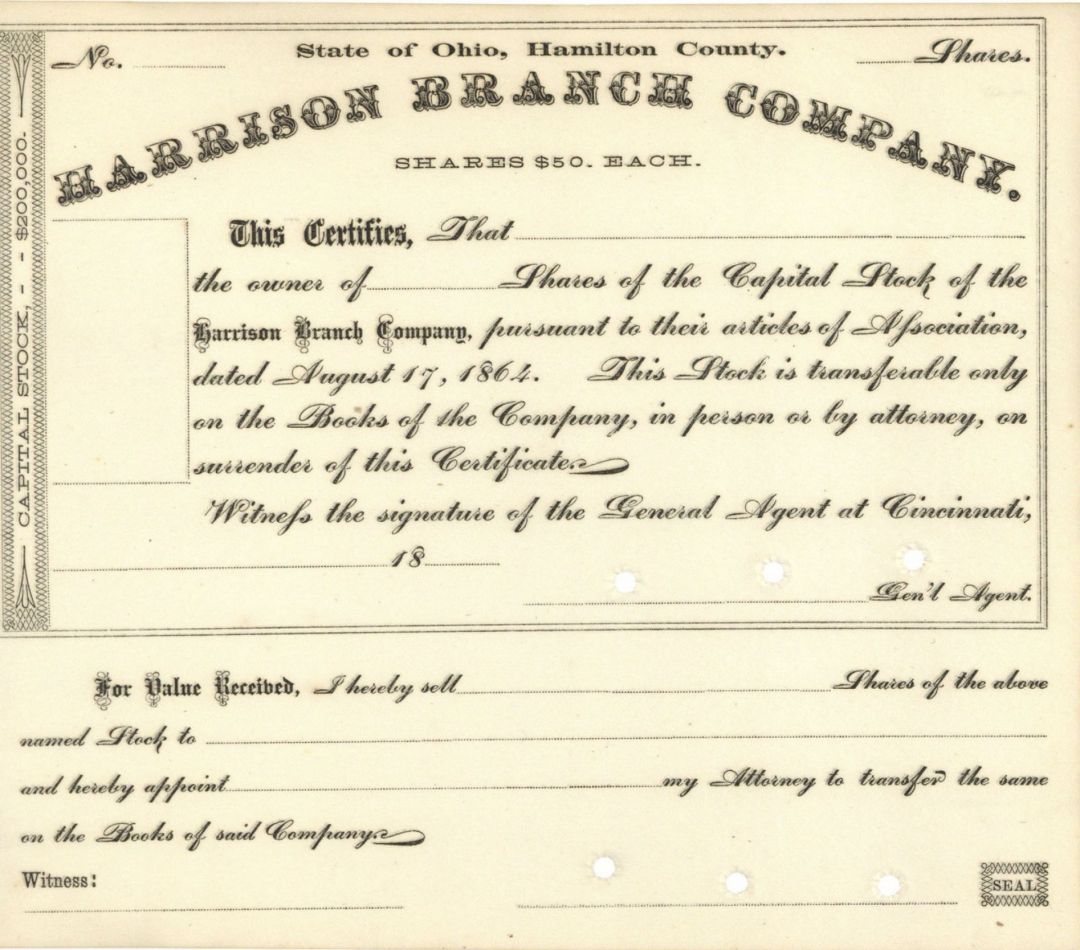 No.
State of Ohio, Hamilton County.
Shares.
HARRISON BRANCH COMPANY.
SHARES $50. EACH.
CAPITAL STOCK, - - $200,000.
This Certifies, That
the owner of Shares of the Capital Stock of the
Harrison Branch Company, pursuant to their articles of Aſsociation,
dated August 17, 1864. This Stock is transferable only
on the Books of the Company, in person or by attorney, on
surrender of this Certificate.
Witneſs the signature of the General Agent at Cincinnati,
18
Gen'l Agent.
For Value Received, I hereby sell Shares of the above
named Stock to
and hereby appoint my Attorney to transfer the same
on the Books of said Company.
Witness:
SEAL